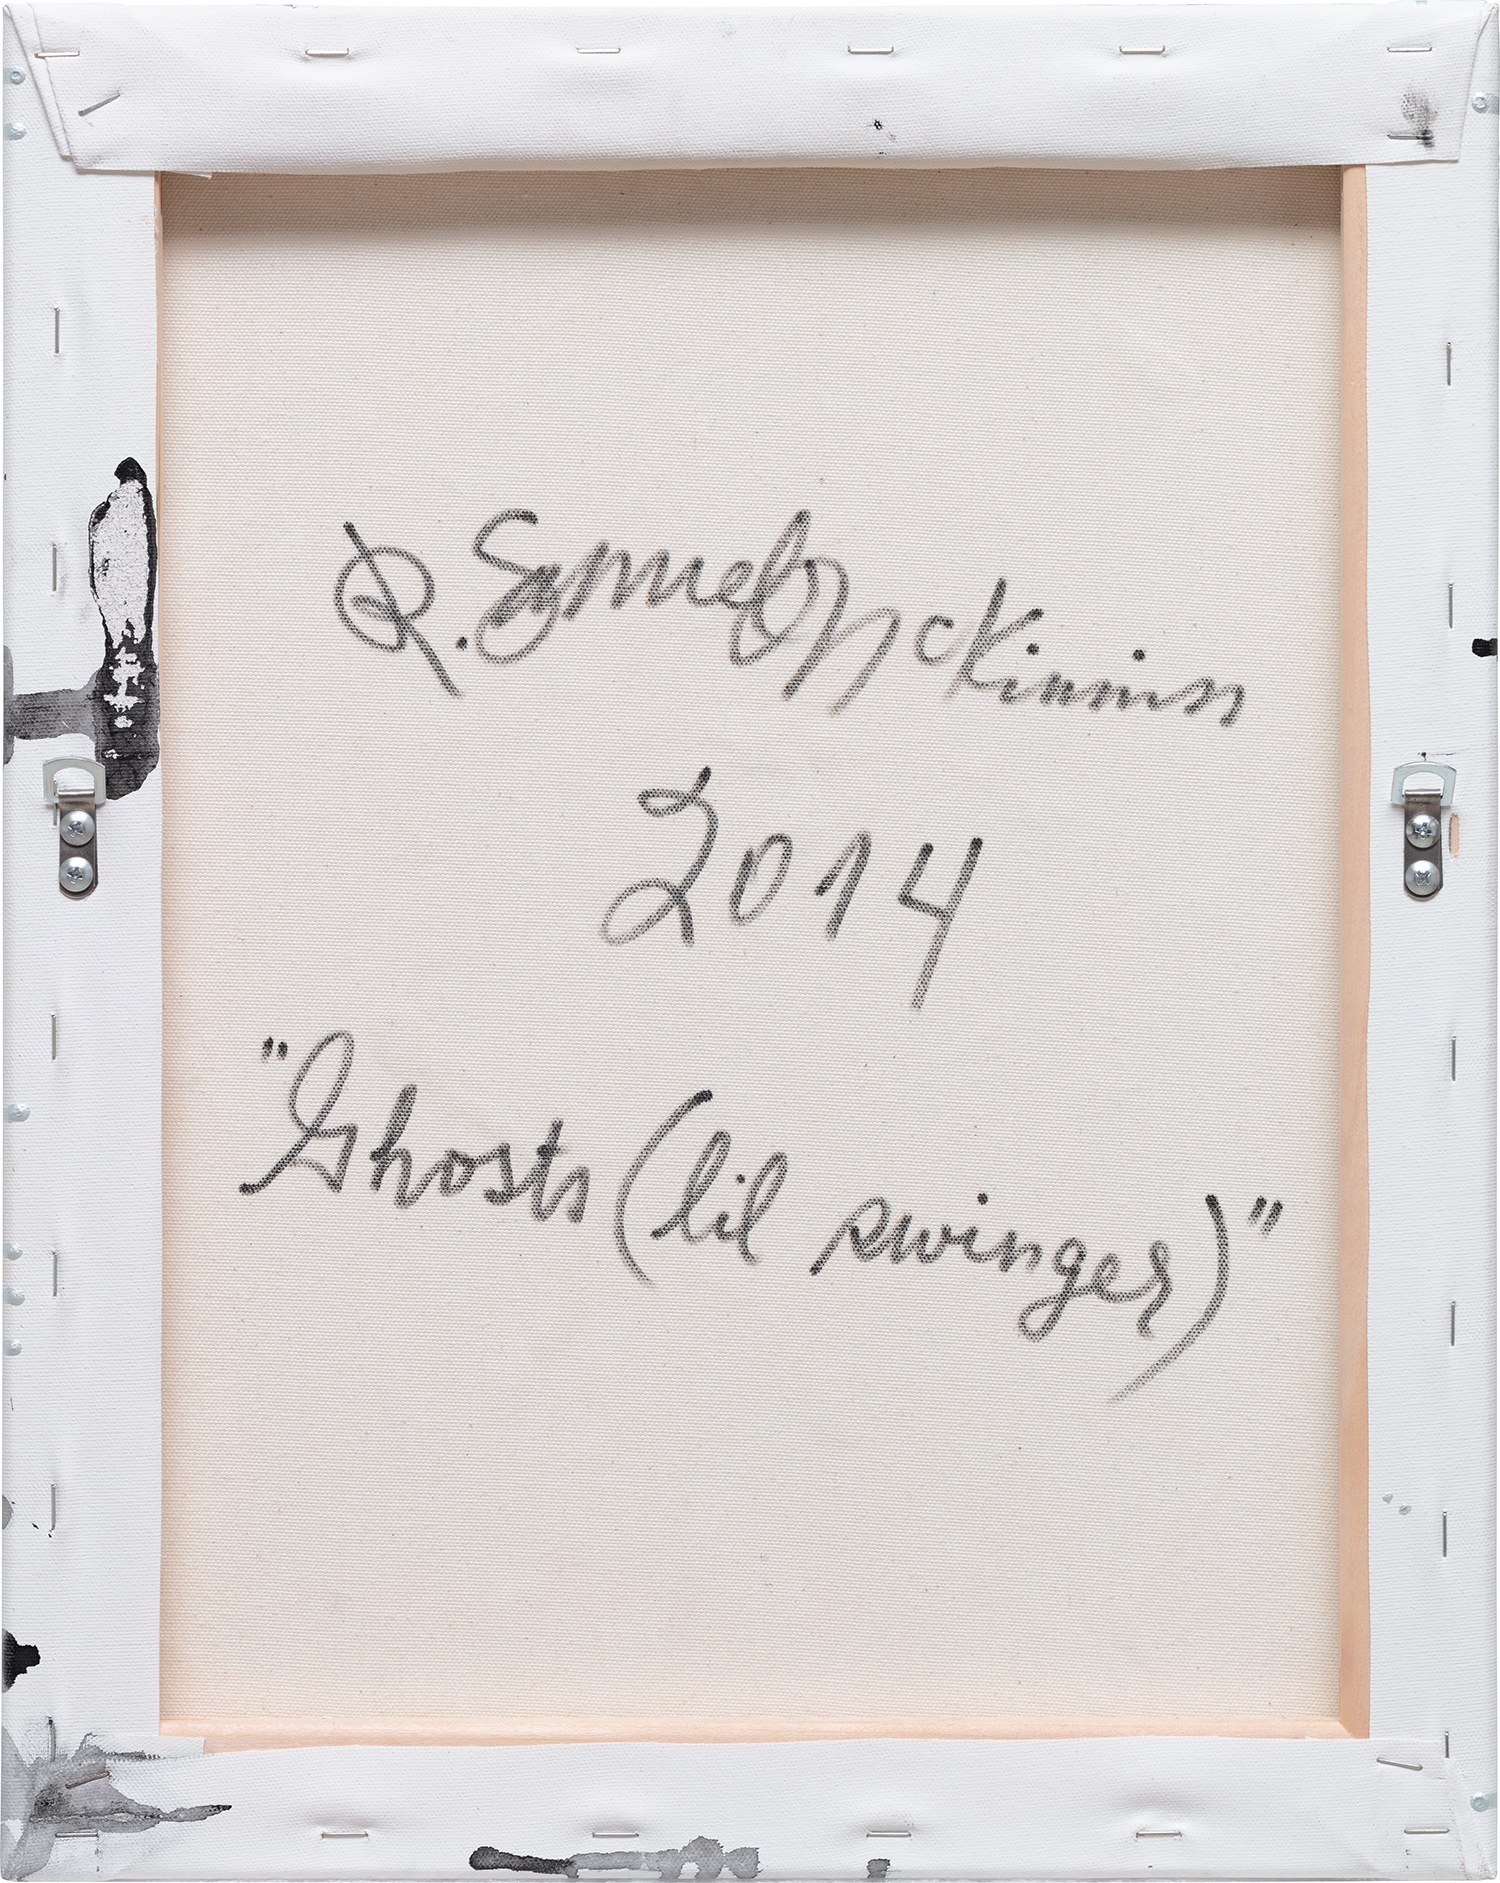 R. Samuel McKinniss
2014
"Ghosts (lil swinger)"